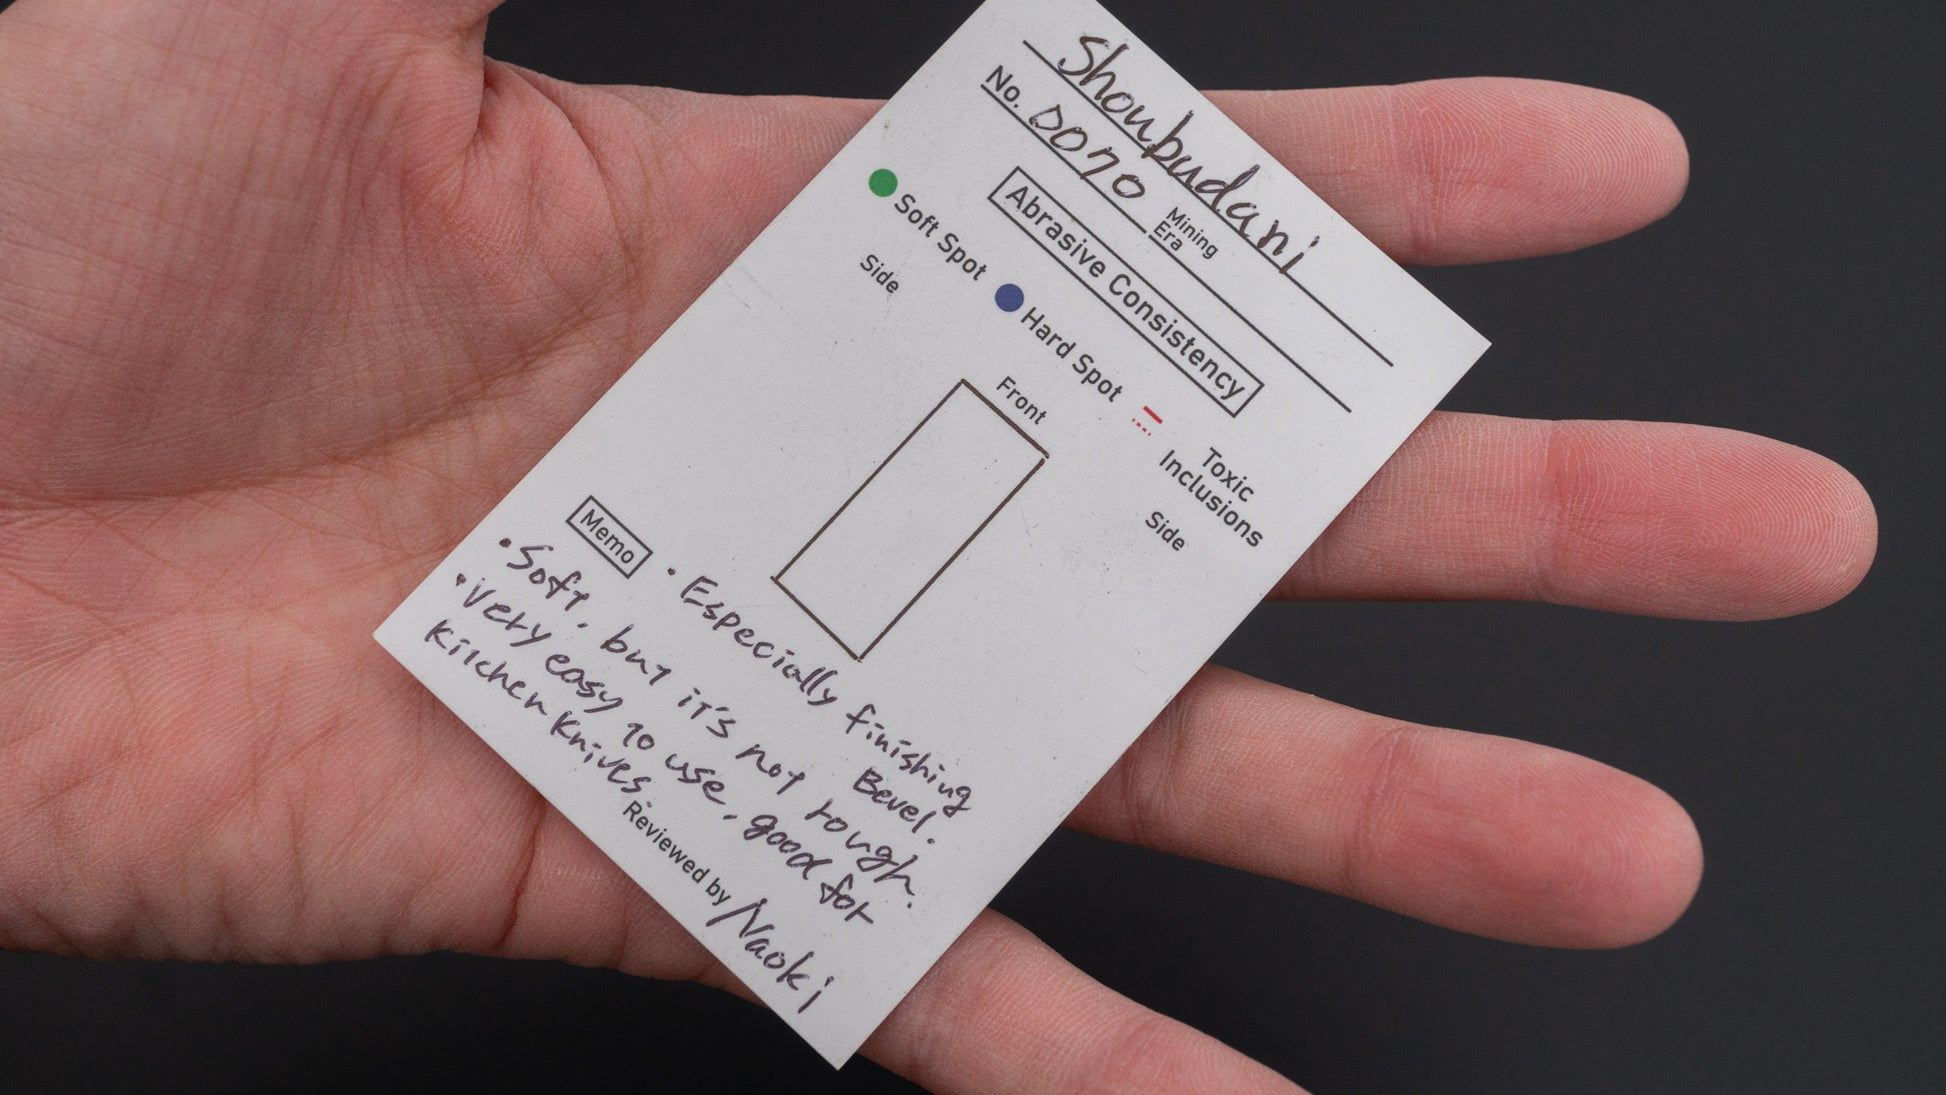 Shoubudani
No. 0070
Mining
Era
Abrasive Consistency
Soft Spot
Hard Spot
Toxic
Inclusions
Side
Front
Side
Memo
• Especially finishing
Bevel.
• Soft, but it's not rough.
• Very easy to use, good for
Kitchen Knives.
Reviewed by Naoki